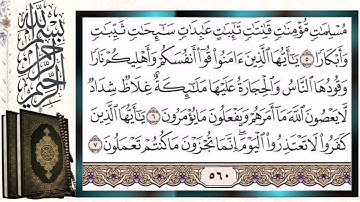 مُسْلِمَٰتٍ مُّؤْمِنَٰتٍ قَٰنِتَٰتٍ تَٰٓئِبَٰتٍ عَٰبِدَٰتٍ سَٰٓئِحَٰتٍ ثَيِّبَٰتٍ
وَأَبْكَارًا ٥ يَٰٓأَيُّهَا ٱلَّذِينَ ءَامَنُوا۟ قُوٓا۟ أَنفُسَكُمْ وَأَهْلِيكُمْ نَارًا
وَقُودُهَا ٱلنَّاسُ وَٱلْحِجَارَةُ عَلَيْهَا مَلَٰٓئِكَةٌ غِلَاظٌ شِدَادٌ
لَّا يَعْصُونَ ٱللَّهَ مَآ أَمَرَهُمْ وَيَفْعَلُونَ مَا يُؤْمَرُونَ ٦ يَٰٓأَيُّهَا ٱلَّذِينَ
كَفَرُوا۟ لَا تَعْتَذِرُوا۟ ٱلْيَوْمَ إِنَّمَا تُجْزَوْنَ مَا كُنتُمْ تَعْمَلُونَ ٧
٥٦٠
بسم الله الرحمن الرحيم